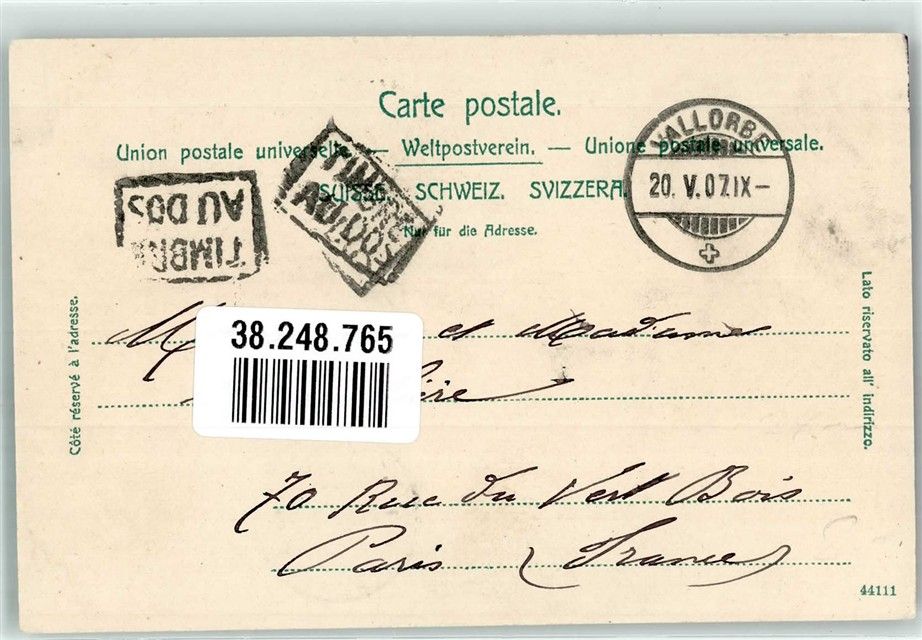 Carte postale.
Union postale universelle. — Weltpostverein. — Unione postale universale.
SUISSE. SCHWEIZ. SVIZZERA.
Nur für die Adresse.
TIMBRE
AU DOS
TIMBRE
AU DOS
VALLORBE
20. V. 07. IX –
Côté réservé à l'adresse.
Lato riservato all' indirizzo.
38.248.765
et Madame
70 Rue du Vert Bois
Paris (France)
44111